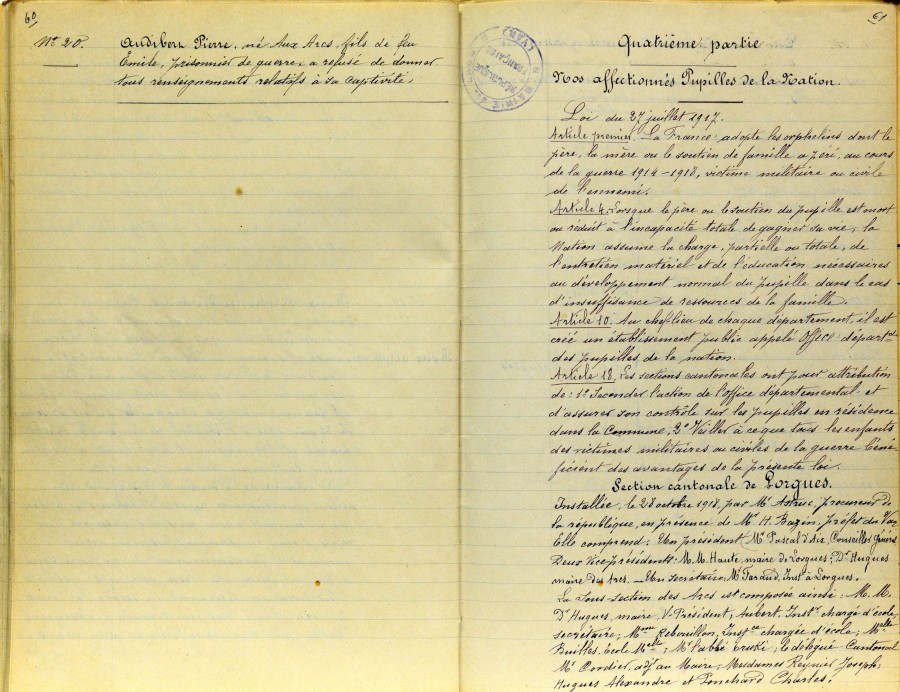 60
No 20.
Audibert Pierre, né Aux Arcs, fils de feu
Emile, prisonnier de guerre, a refusé de donner
tous renseignements relatifs à sa captivité.
61
Quatrième partie
Nos affectionnés Pupilles de la Nation.
Loi du 27 juillet 1917.
Article premier. La France adopte les orphelins dont le
père, la mère ou le soutien de famille a péri, au cours
de la guerre 1914-1918, victime militaire ou civile
de l'ennemi.
Article 4. Lorsque le père ou le soutien du pupille est mort
ou réduit à l'incapacité totale de gagner sa vie, la
Nation assume la charge, partielle ou totale, de
l'entretien matériel et de l'éducation nécessaires
au développement normal du pupille dans le cas
d'insuffisance de ressources de la famille.
Article 10. Au chef-lieu de chaque département, il est
créé un établissement public appelé Office départal
des pupilles de la nation.
Article 18. Les sections cantonales ont pour attribution
de: 1o Seconder l'action de l'office départemental et
d'assurer son contrôle sur les pupilles en résidence
dans la Commune, 2o Veiller à ce que tous les enfants
des victimes militaires ou civiles de la guerre béné
ficient des avantages de la présente loi.
Section cantonale de Lorgues.
Installée, le 28 octobre 1918, par Mr Astruc, procureur de
la république, en présence de Mr H. Bazin, préfet du Var
Elle comprend: Un président, Mr Pascal d'Aix, Conseiller Général
Deux vice présidents: M.M. Haute, maire de Lorgues; Dr Hugues
maire des Arcs. _ Un secrétaire, Mr Faraud, Instr à Lorgues.
La sous-section des Arcs est composée ainsi: M. M.
Dr Hugues, maire, V-Président; Aubert, Instr chargé d'école
secrétaire; Mme Rebouillon, Instce chargée d'école; Melle
Buitles, Ecole Melle; Mr l'abbé; le délégué Cantonal
Mr Cordier, adjt au Maire; Mesdames Reynier Joseph;
Hugues Alexandre et Ponchard Charles.